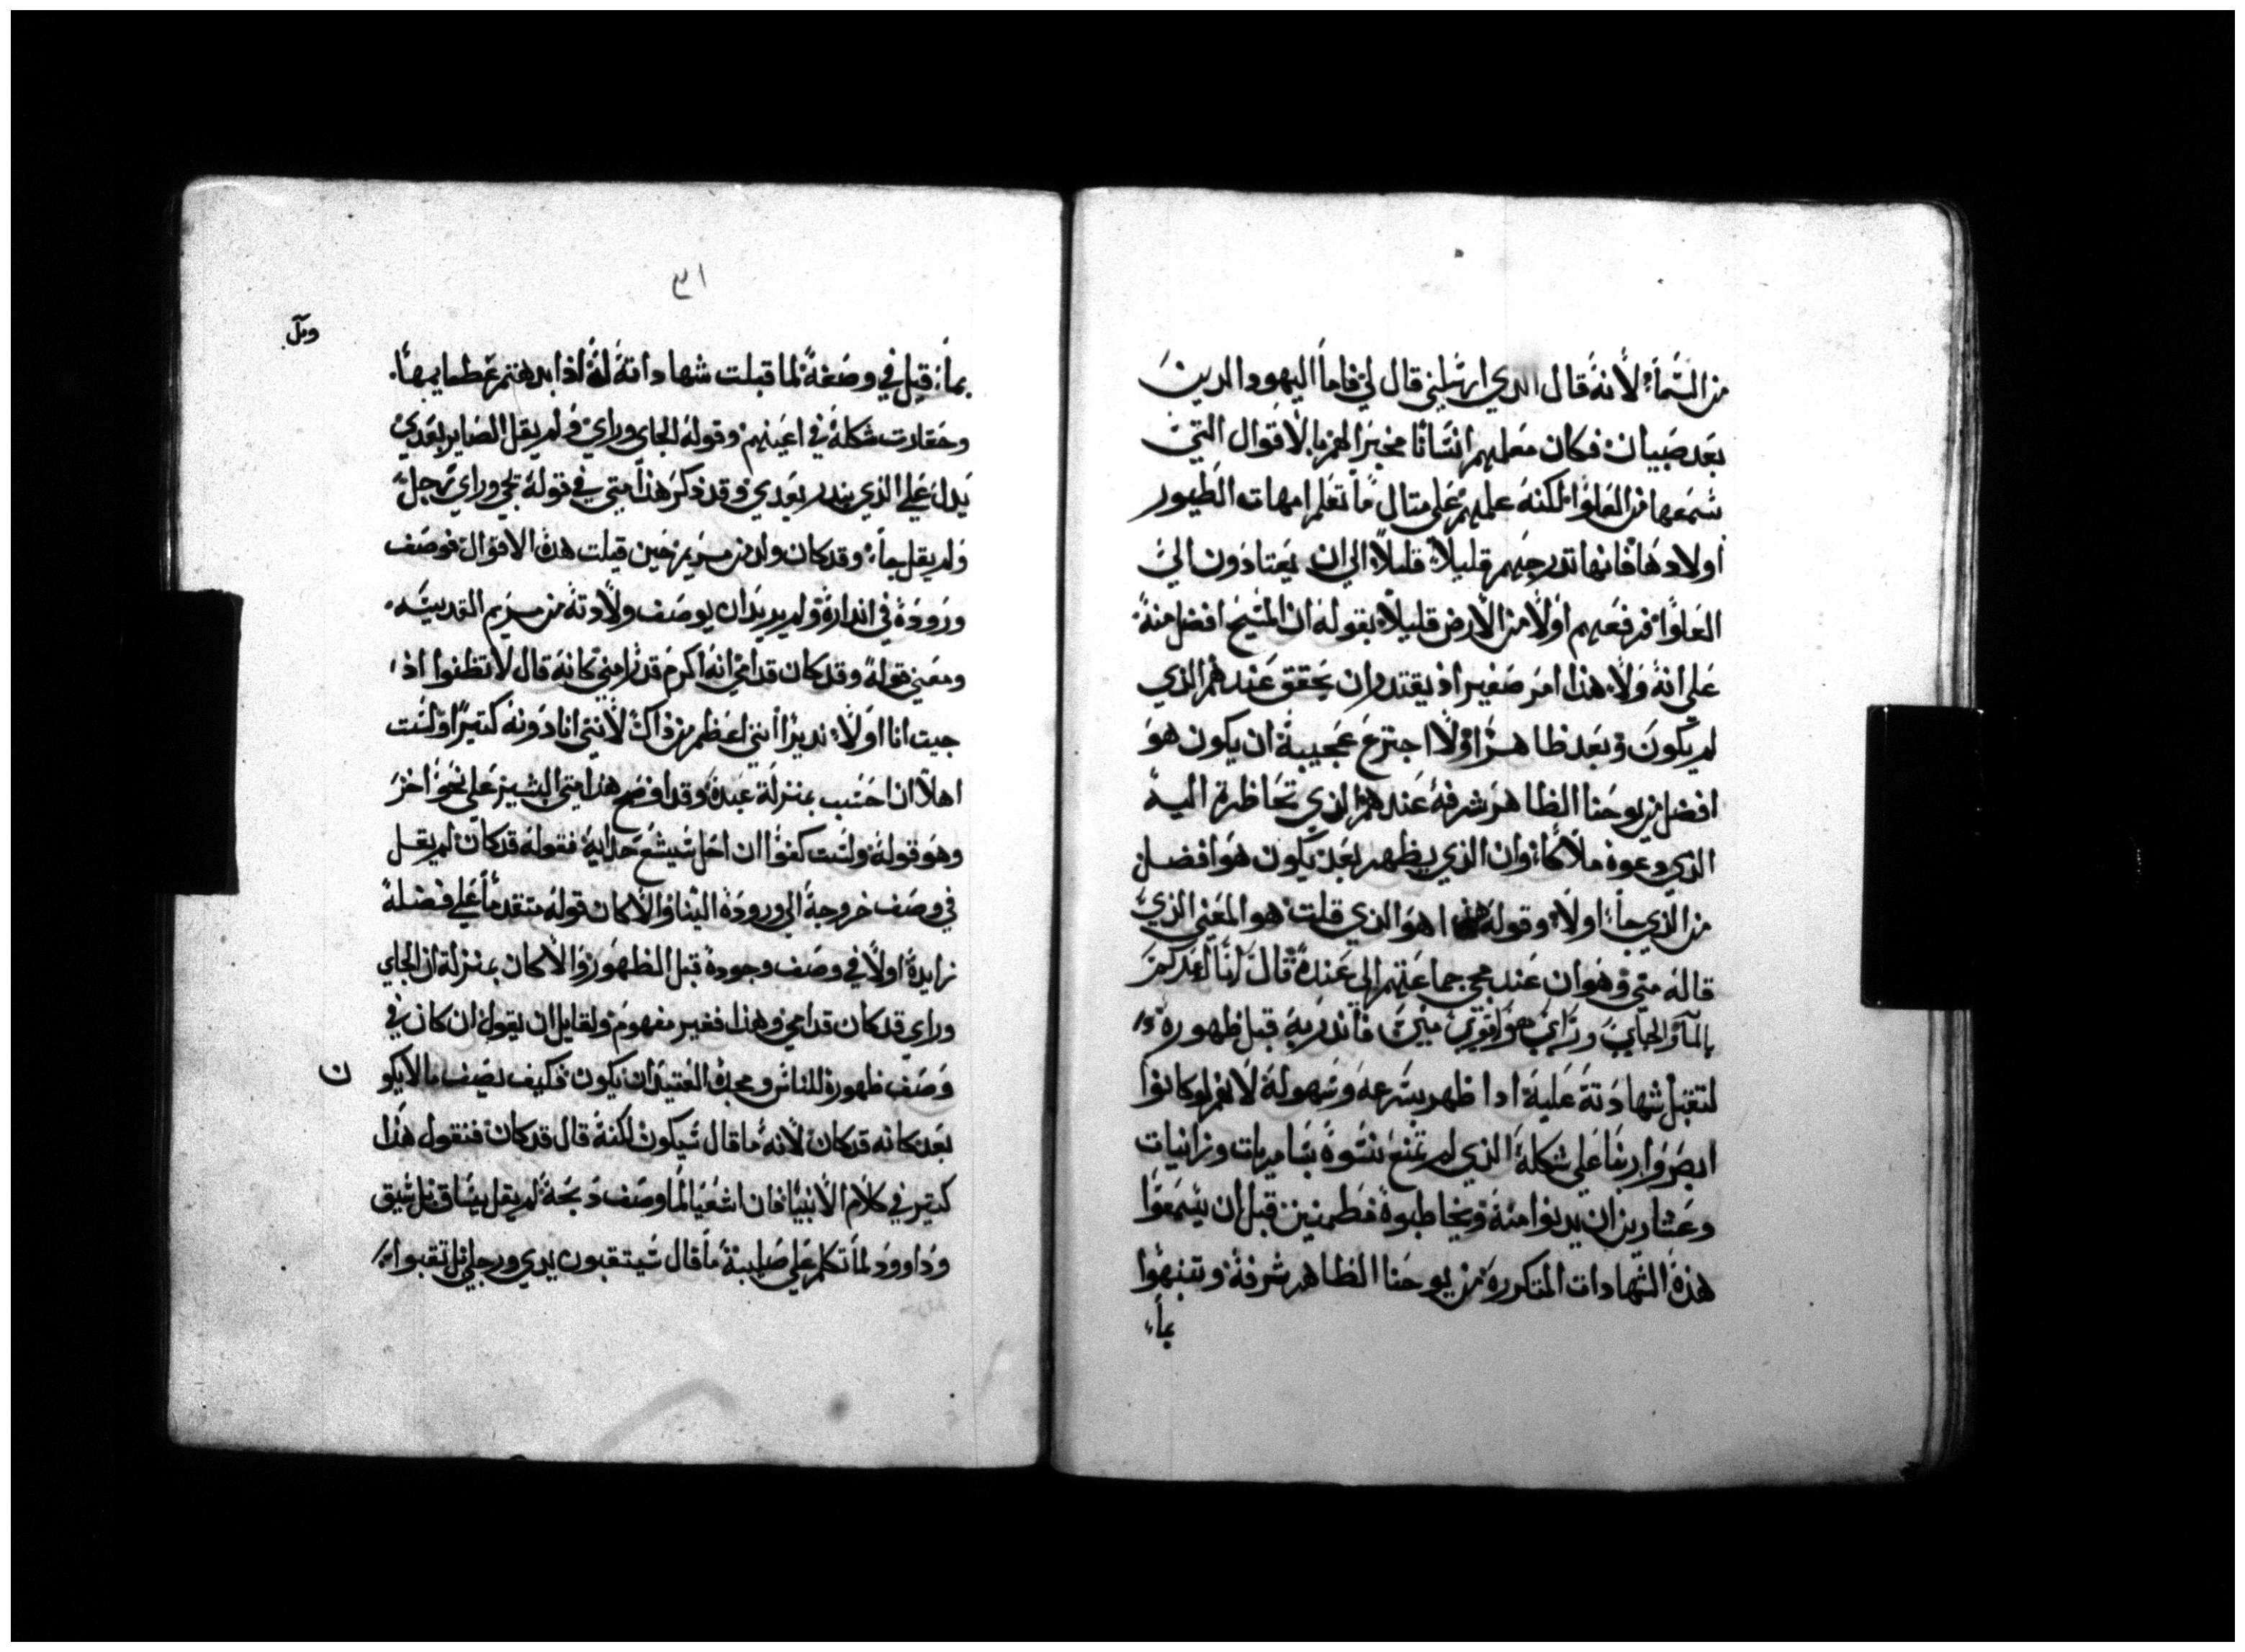 من السَّمآء لأنهَ قال الدي ارسَلني قال لي فاما اليهود الدينَ
بعَد صَبيان فكان معَلمهم انسَانًا مخبرَا لهم بالأقوال التيَ
سَمعَها من العَلوّا لكنهَ علمهم عَلي متال مًا تعَلم امهات الطَيور
اولادهَا فانها تدرجهَم قليلاً قليلاً الي ان يعَتادَون الي
العَلوّا فرفعَهم اوَلاً من الأرض قليلاً بقولهَ ان المسَيح افضل منهَ
عَلي انهَ وَلا هذا امرَ صَغير اذ يقتدر ان يحَقق عَندهم الذي
لم يكونَ وَبعَد ظاهرًا اوَلاً اجترعَ عَجيبةَ ان يكون هوَ
افضل من يوحَنا الظاهرَ شرفهَ عَندهم الذي تحَاظرة اليه
الذي دعَوهَ ملاكاً وان الذي يظهر بعَد يكون هوَ افضل
من الذي جاء اولاً وقولهَ هذا هوَ الذي قلت هو المعَني الذي
قالهَ متي وَهوَ ان عَند مجي جماعَتهم الي عَندهَ قالَ انَا اعَمدكمَ
بالمآ والجايَ ورَايَ هوَ اقويَ منيَ فأندر بهَ قبل ظهورهَ
لتقبل شهادَتهَ عَليهَ اذا ظهر بسَرعهَ وسَهولهَ لأنهم لو كانوا
ابصَرَوا ايضًا عَلي شكلهَ الذي لم تمنعَ بنسَوة سَامريات وزانيات
وعَشارين ان يدنوا منهَ ويخاطبوهَ مَطمنين قبل ان يسَمعَوا
هذهَ الشهادات المتكررةَ من يوحَنا الظاهر شرفهَ وتنبهوا
بمآء
٣١
بمآء قيل في وصَفهَ لما قبلت شهاداتهَ لهَ اذا يدهتم عَطماعها
وحَقارت شكلهَ في اعَينهم وقولهَ الجاي ورايَ وَلم يقل الصَاير بعَديَ
يَدل عَلي الذي يندر بعَدي وقد ذكرَ هذا متي في قولهَ يجي وراي رَجل
ولم يقل جاء وقد كان ولد من مريم حَين قيلت هذهَ الاقوال فوصَف
ورَودَهَ في اندارهَ ولم يريدَ ان يوصَف ولادتهَ من مريم القديسَه
ومعَني قولهَ وقد كان قدامي انهَ اكرمَ قدرًا مني كانهَ قال لا تظنوا اذا
جيت انا اولاً نديرًا انني اعَظم من ذاك لأنني انا دَونهَ كتيرًا ولسَت
اهلاً ان احَسَب بمنزلة عَبدهَ وقد اوضَح هذا متي البشير عَلي نحَوا اخرَ
وهوَ قولهَ ولسَت كفوا ان احَل سَيسَع حَدايهَ فقولهَ قد كان لم يقل
في وصَف خروجهَ الي ورودهَ الينا والأ كان قولهَ متقدماً عَلي فضلهَ
زايدهَ اولاً في وصَف وجودهَ قبل الظهورَ والأ كان بمنزلة ان الجاي
وراي قد كان قدامي وهذا فغير مفهومَ ولقايل ان يقول ان كان في
وَصَف ظهورهَ للناسَ ومجدهَ العَتيد ان يكون فكيف يصَف ما لا يكو
ن
بعَد كانه قد كان لأنه ما قال سَيكون لكنهَ قال قد كان فنقول هذا
كتير في كلام الأنبيا فان اشعَيا لما وصَف دَبحَهَ لم يقل يسَاق بل سَيق
ودَاوودَ لما تكلم عَلي صَليبهَ ما قال سَيتقبون يدي ورجلي بل تقبوا